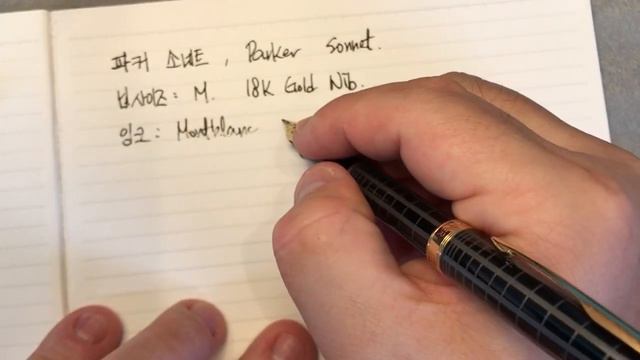 파커 소네트, Parker Sonnet.
닙사이즈: M. 18K Gold Nib.
잉크: Montblanc